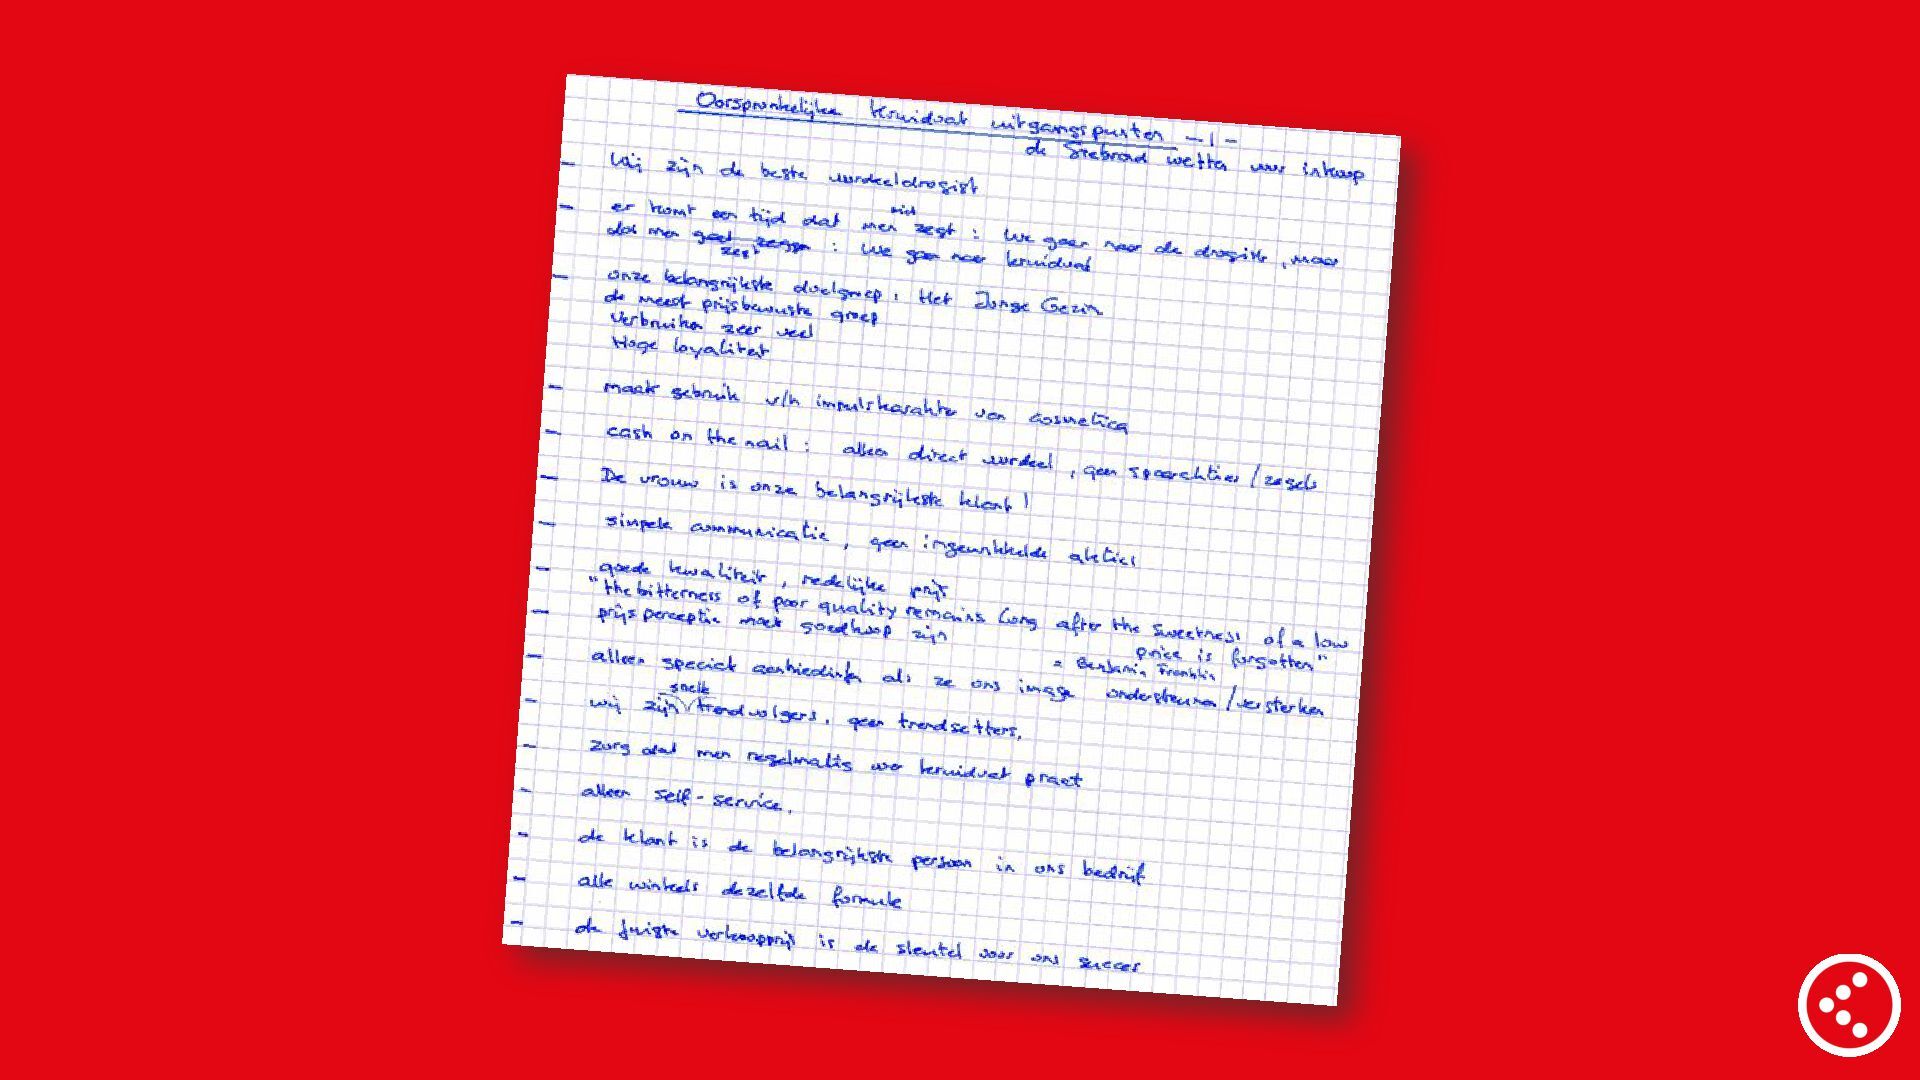 Oorspronkelijke Kruidvat uitgangspunten -1-
de Siebrand wetten voor inkoop
- Wij zijn de beste voordeeldrogist
- er komt een tijd dat men niet zegt : We gaan naar de drogist, maar
dat men gaat zeggen zegt : We gaan naar kruidvat
- onze belangrijkste doelgroep : Het Jonge Gezin
de meest prijsbewuste groep
verbruiken zeer veel
Hoge loyaliteit
- maak gebruik v/h impulskarakter van cosmetica
- cash on the nail : alleen direct voordeel, geen spaarakties / zegels
- De vrouw is onze belangrijkste klant !
- simpele communicatie, geen ingewikkelde akties
- goede kwaliteit, redelijke prijs
"the bitterness of poor quality remains long after the sweetness of a low
price is forgotten"
= Benjamin Franklin
- prijsperceptie moet goedkoop zijn
- alleen speciale aanbiedingen als ze ons image ondersteunen / versterken
- wij zijn snelle trendvolgers, geen trendsetters.
- zorg dat men regelmatig over kruidvat praat
- alleen self-service.
- de klant is de belangrijkste persoon in ons bedrijf
- alle winkels dezelfde formule
- de juiste verkoopprijs is de sleutel voor ons succes